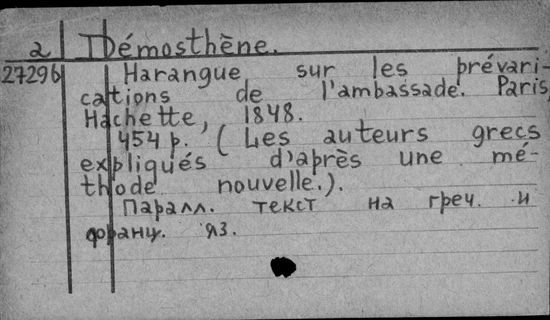 2 Démosthène.
27296 Harangue sur les prévari-
cations de l'ambassade. Paris,
Hachette, 1848.
454 p. (Les auteurs grecs
expliqués d'après une mé-
thode nouvelle.).
Паралл. текст на греч. и
франц. яз.